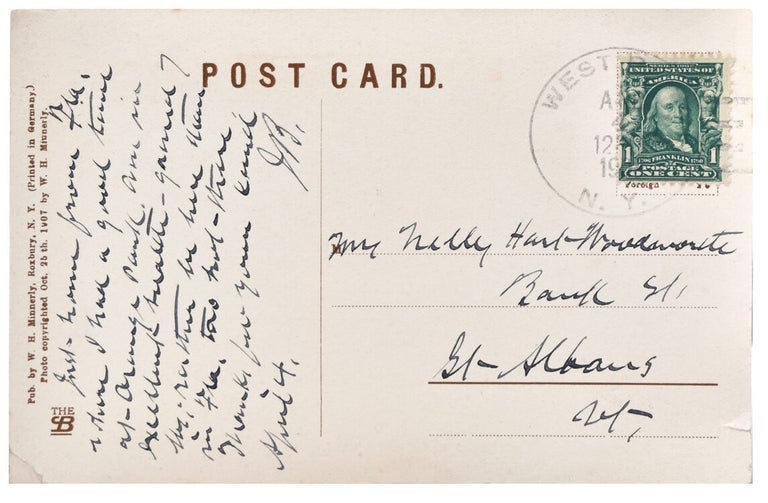 POST CARD.
Pub. by W. H. Minnerly, Roxbury, N. Y. (Printed in Germany.)
Photo copyrighted Oct. 25th. 1907 by W. H. Minnerly.
THE
Just home from Fla,
where I had a good time
at Orange Park. Am in
excellent health - gained 7
lbs, - rather be here than
in Fla, too hot there
Thanks for your card
J.B.
April 4,
WEST
N. Y.
SERIES 1902
UNITED STATES OF
AMERICA
1706 FRANKLIN 1790
1 POSTAGE 1
ONE CENT
Foreign
Nelly Hart Woodworth
Bank St,
St Albans
Vt,